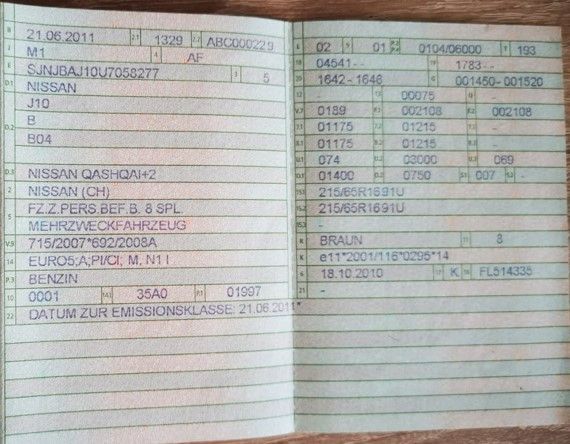 B 21.06.2011 2.1 1329 2.2 ABC000229
J M1 4 AF
E SJNJBAJ10U7058277 3 5
D.1 NISSAN
J10
D.2 B
B04
D.3 NISSAN QASHQAI+2
2 NISSAN (CH)
5 FZ.Z.PERS.BEF.B. 8 SPL.
MEHRZWECKFAHRZEUG
V.9 715/2007*692/2008A
14 EURO5;A;PI/CI; M, N1 I
P.3 BENZIN
10 0001 14.1 35A0 P.1 01997
22 DATUM ZUR EMISSIONSKLASSE: 21.06.2011*
L 02 9 01 P.2 P.4 0104/06000 T 193
18 04541-- 19 1783--
20 1642-1646 G 001450-001520
12 - 13 00075 Q -
V.7 0189 F.1 002108 F.2 002108
7.1 01175 7.2 01215 7.3 -
8.1 01175 8.2 01215 8.3 -
U.1 074 U.2 03000 U.3 069
O.1 01400 O.2 0750 S.1 007 S.2 -
15.1 215/65R1691U
15.2 215/65R1691U
15.3 -
R BRAUN 11 8
K e11*2001/116*0295*14
6 18.10.2010 17 K 16 FL514335
21 -